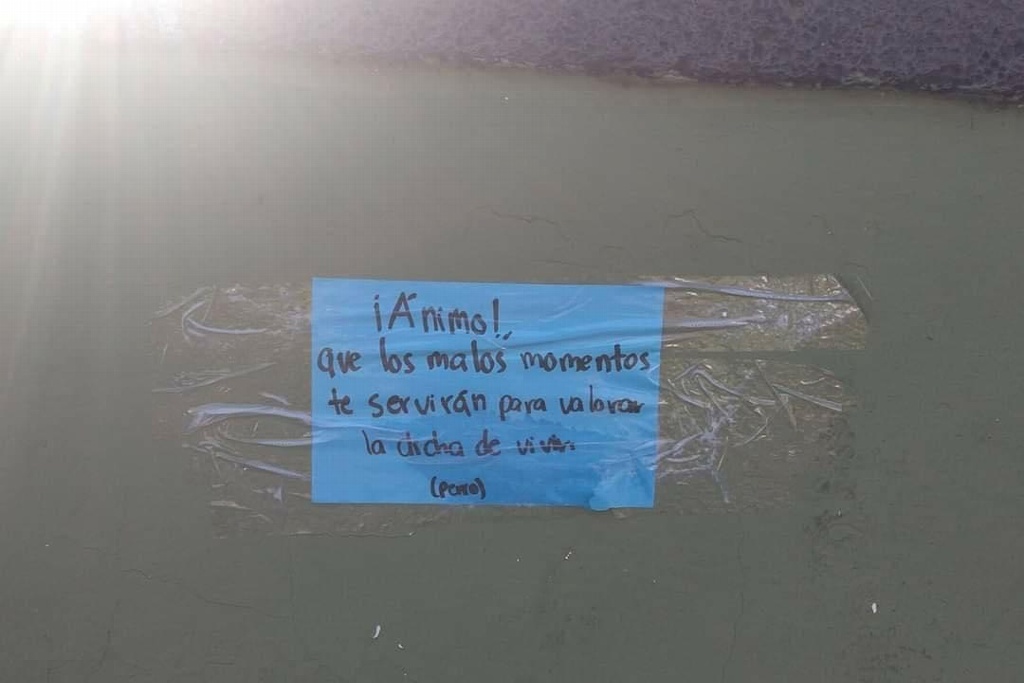 ¡Ánimo!
que los malos momentos
te servirán para valorar
la dicha de vivir
(perro)